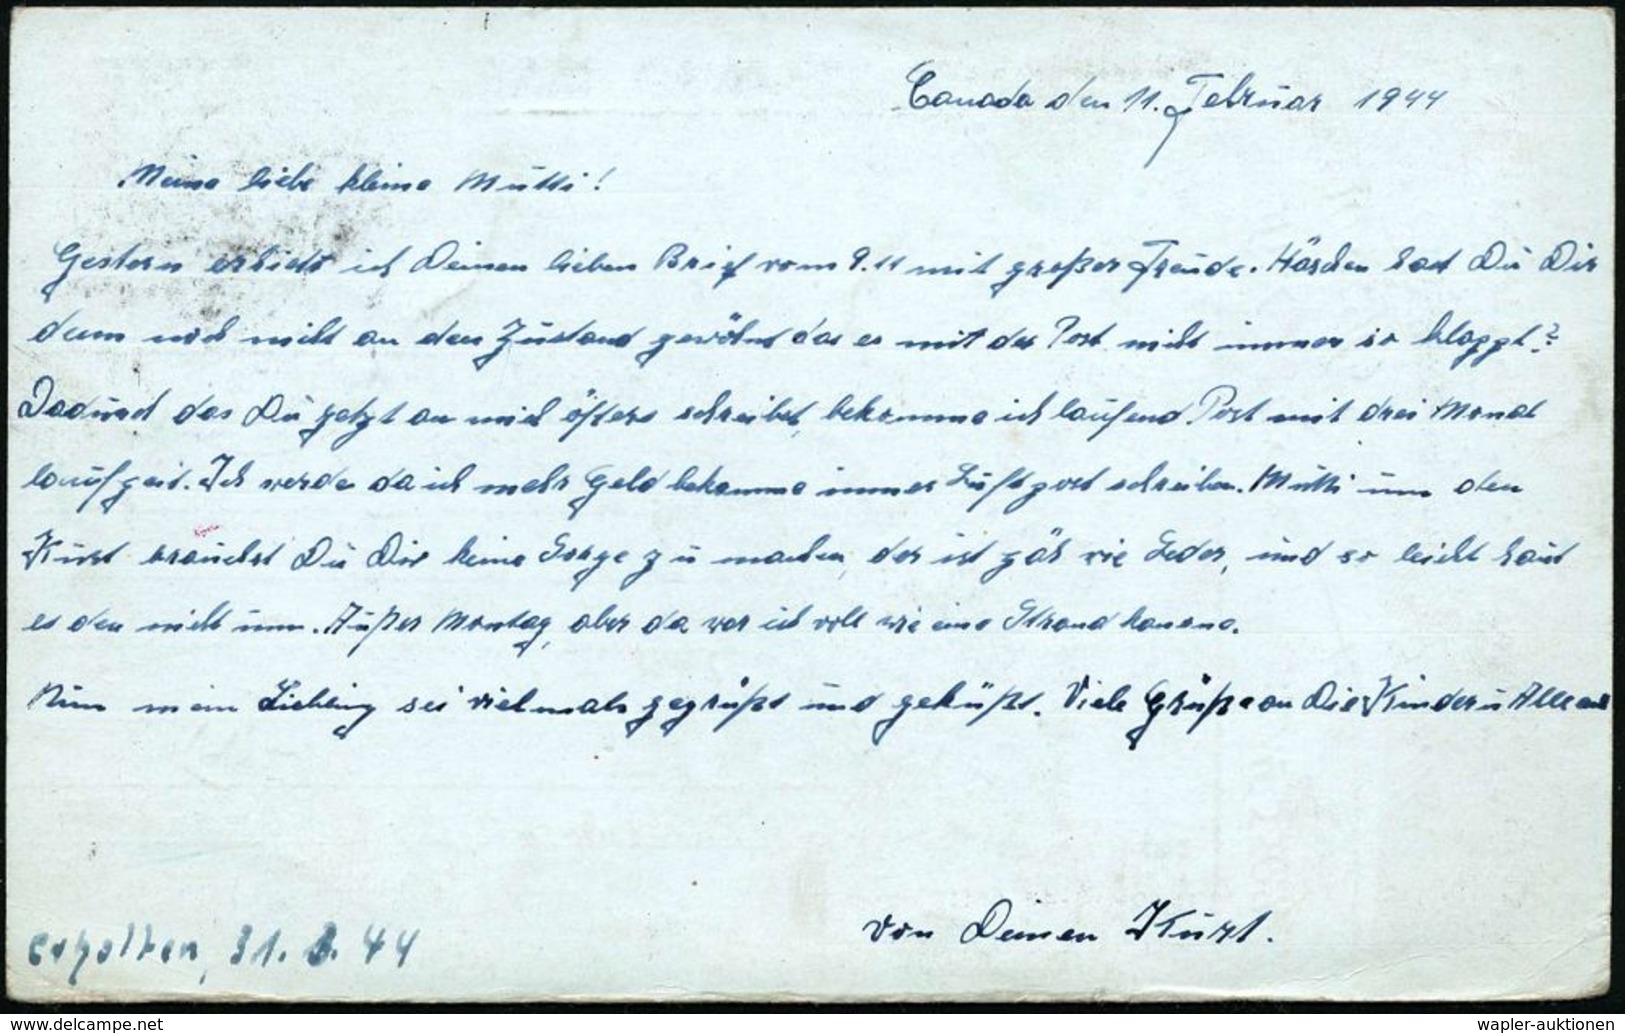 Canada den 11. Februar 1944
Meine liebe kleine Mutti!
Gestern erhielt ich Deinen lieben Brief vom 9.11 mit großer Freude. Häschen hast Du Dir
denn noch nicht an den Zustand gewöhnt das es mit der Post nicht immer so klappt?
Dadurch das Du jetzt an mich öfters schreibst, bekomme ich laufend Post mit drei Monat
laufzeit. Ich werde da ich mehr Geld bekomme immer Luftpost schreiben. Mutti um den
Kurt brauchst Du Dir keine Sorge zu machen, der ist zäh wie Leder, und so leicht haut
es den nicht um. Außer Montag, aber da war ich voll wie eine Strandkanone.
Nun mein Liebling sei vielmals gegrüßt und geküßt. Viele Grüße an Die Kinder u Alle
von Deinen Kurt.
erhalten, 31. 44
wapler-auktionen
www.delcampe.net